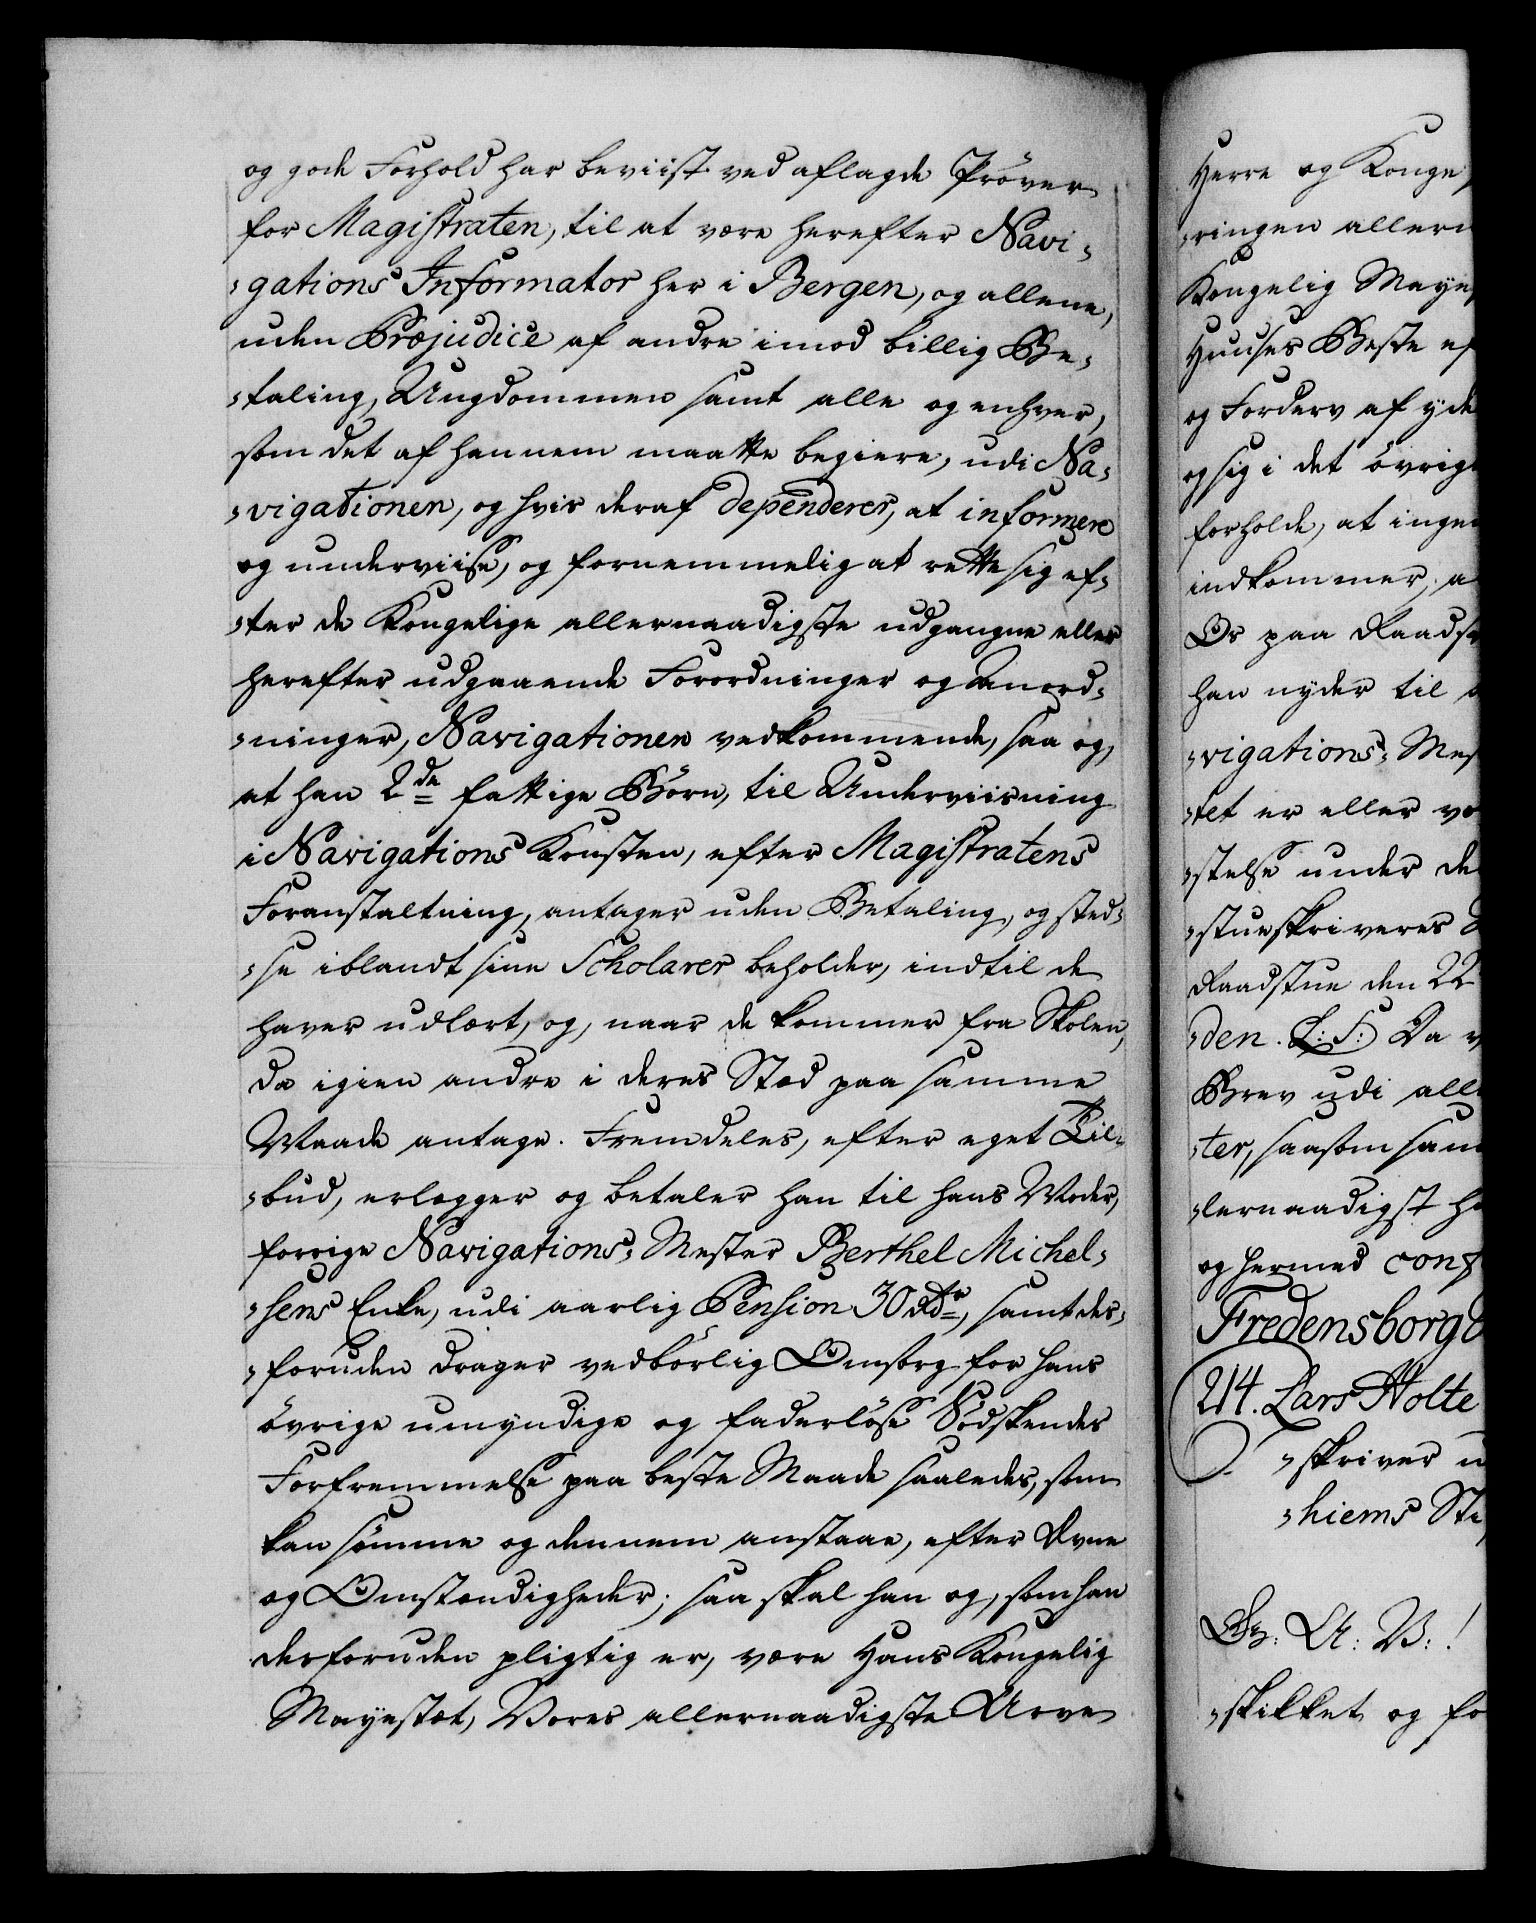 og gode Forhold har beviist ved aflagde Pröver
for Magistraten, til at være herefter Navi-
-gations Informator her i Bergen, og allene,
uden Præjudice af andre imod billig Be-
-taling, Ungdommen samt alle og enhver,
som det af hannem maatte begiere, udi Na-
-vigationen, og hvis deraf dependerer, at informere
og underviise, og fornemmelig at rette sig ef-
-ter de Kongelige allernaadigste udgangne eller
herefter udgaaende Forordninger og Anord-
-ninger, Navigationen vedkommende, saa og,
at han 2de fattige Börn, til Underviisning
i Navigations Konsten, efter Magistratens
Foranstaltning, antager uden Betaling, og sted-
-se iblandt sine Scholarer beholder, indtil de
haver udlært, og, naar de kommer fra Skolen,
da igien andre i deres Sted paa samme
Maade antage. Fremdeles, efter eget Til-
-bud, erlægger og betaler han til hans Moder,
forrige Navigations-Mester Berthel Michel-
-sens Enke, udi aarlig Pension 30 Rdr, samt des-
-foruden drager vedbörlig Omsorg for hans
övrige umyndige og faderlöse Södskendes
Forfremmelse paa beste Maade saaledes, som
kan sömme og dennem anstaae, efter Evne
og Omstændigheder; saa skal han og, som han
desforuden pligtig er, være Hans Kongelig
Mayestæt, Vores allernaadigste Arve
Herre og Konge
-ringen allern
Kongelig Maye
Huuses Beste ef
og Forderv af yde
og sig i det övrig
forholde, at inge
indkommer, a
Os paa Raads
han nyder til
-vigations-Mes
-tet er eller vo
-stelse under de
-stueskriveres
Raadstue den 22
-den. L:S: Da v
Brev udi all
-ter, saasom sam
-lernaadigst h
og hermed conf
Fredensborg d
214. Lars Holte
-skriver u
-hiems Sti
Gr: A: V:!
-skikket og fo